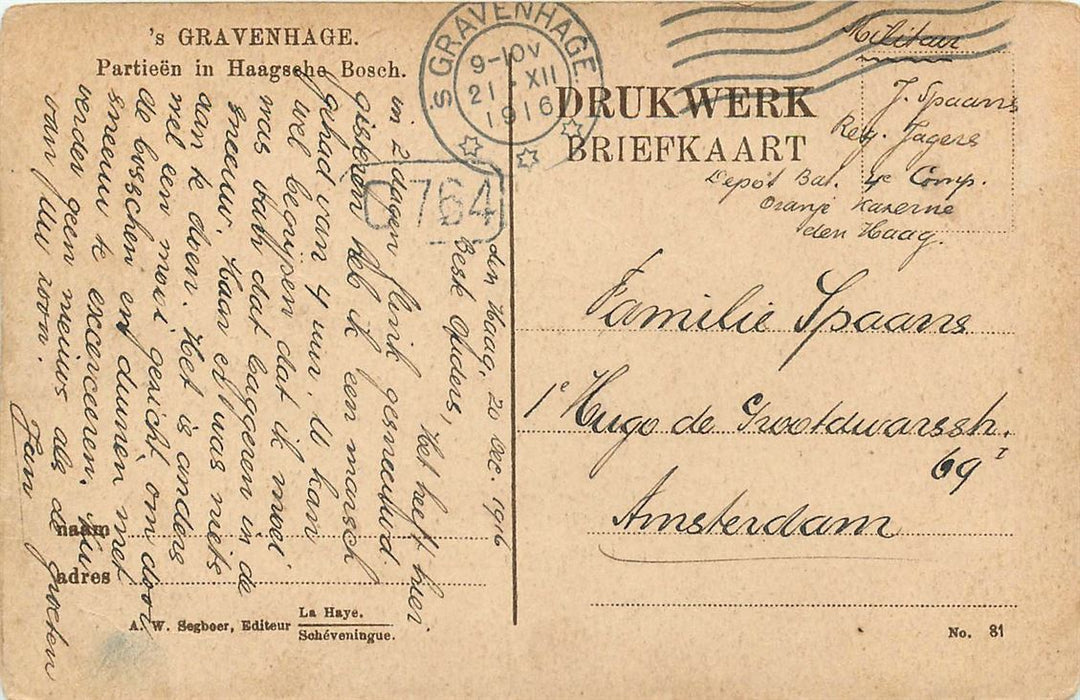 's GRAVENHAGE.
Partieën in Haagsche Bosch.
's GRAVENHAGE
9-10V
21 XII
1916
DRUKWERK
BRIEFKAART
764
Militair
J. Spaans
Reg. Jagers
Depôt Bat. 4e Comp.
Oranje Kazerne
den Haag.
Familie Spaans
1e Hugo de Grootdwarssh.
69 I
Amsterdam
den Haag, 20 Dec. 1916
Beste Ouders,
Het heeft hier
in 2 dagen flink gesneeuwd
gisteren heb ik een marsch
gehad van 4 uur. U kan
wel begrijpen dat ik moe
was van dat baggeren in de
sneeuw. Maar er was niets
aan te doen. Het is anders
wel een mooi gezicht, om door
de bosschen en duinen met
sneeuw te exerceeren. Nu
verder geen nieuws als de groeten
van Uw zoon.
Jan
naam
adres
A. W. Segboer, Editeur La Haye.
Schéveningue.
No. 81